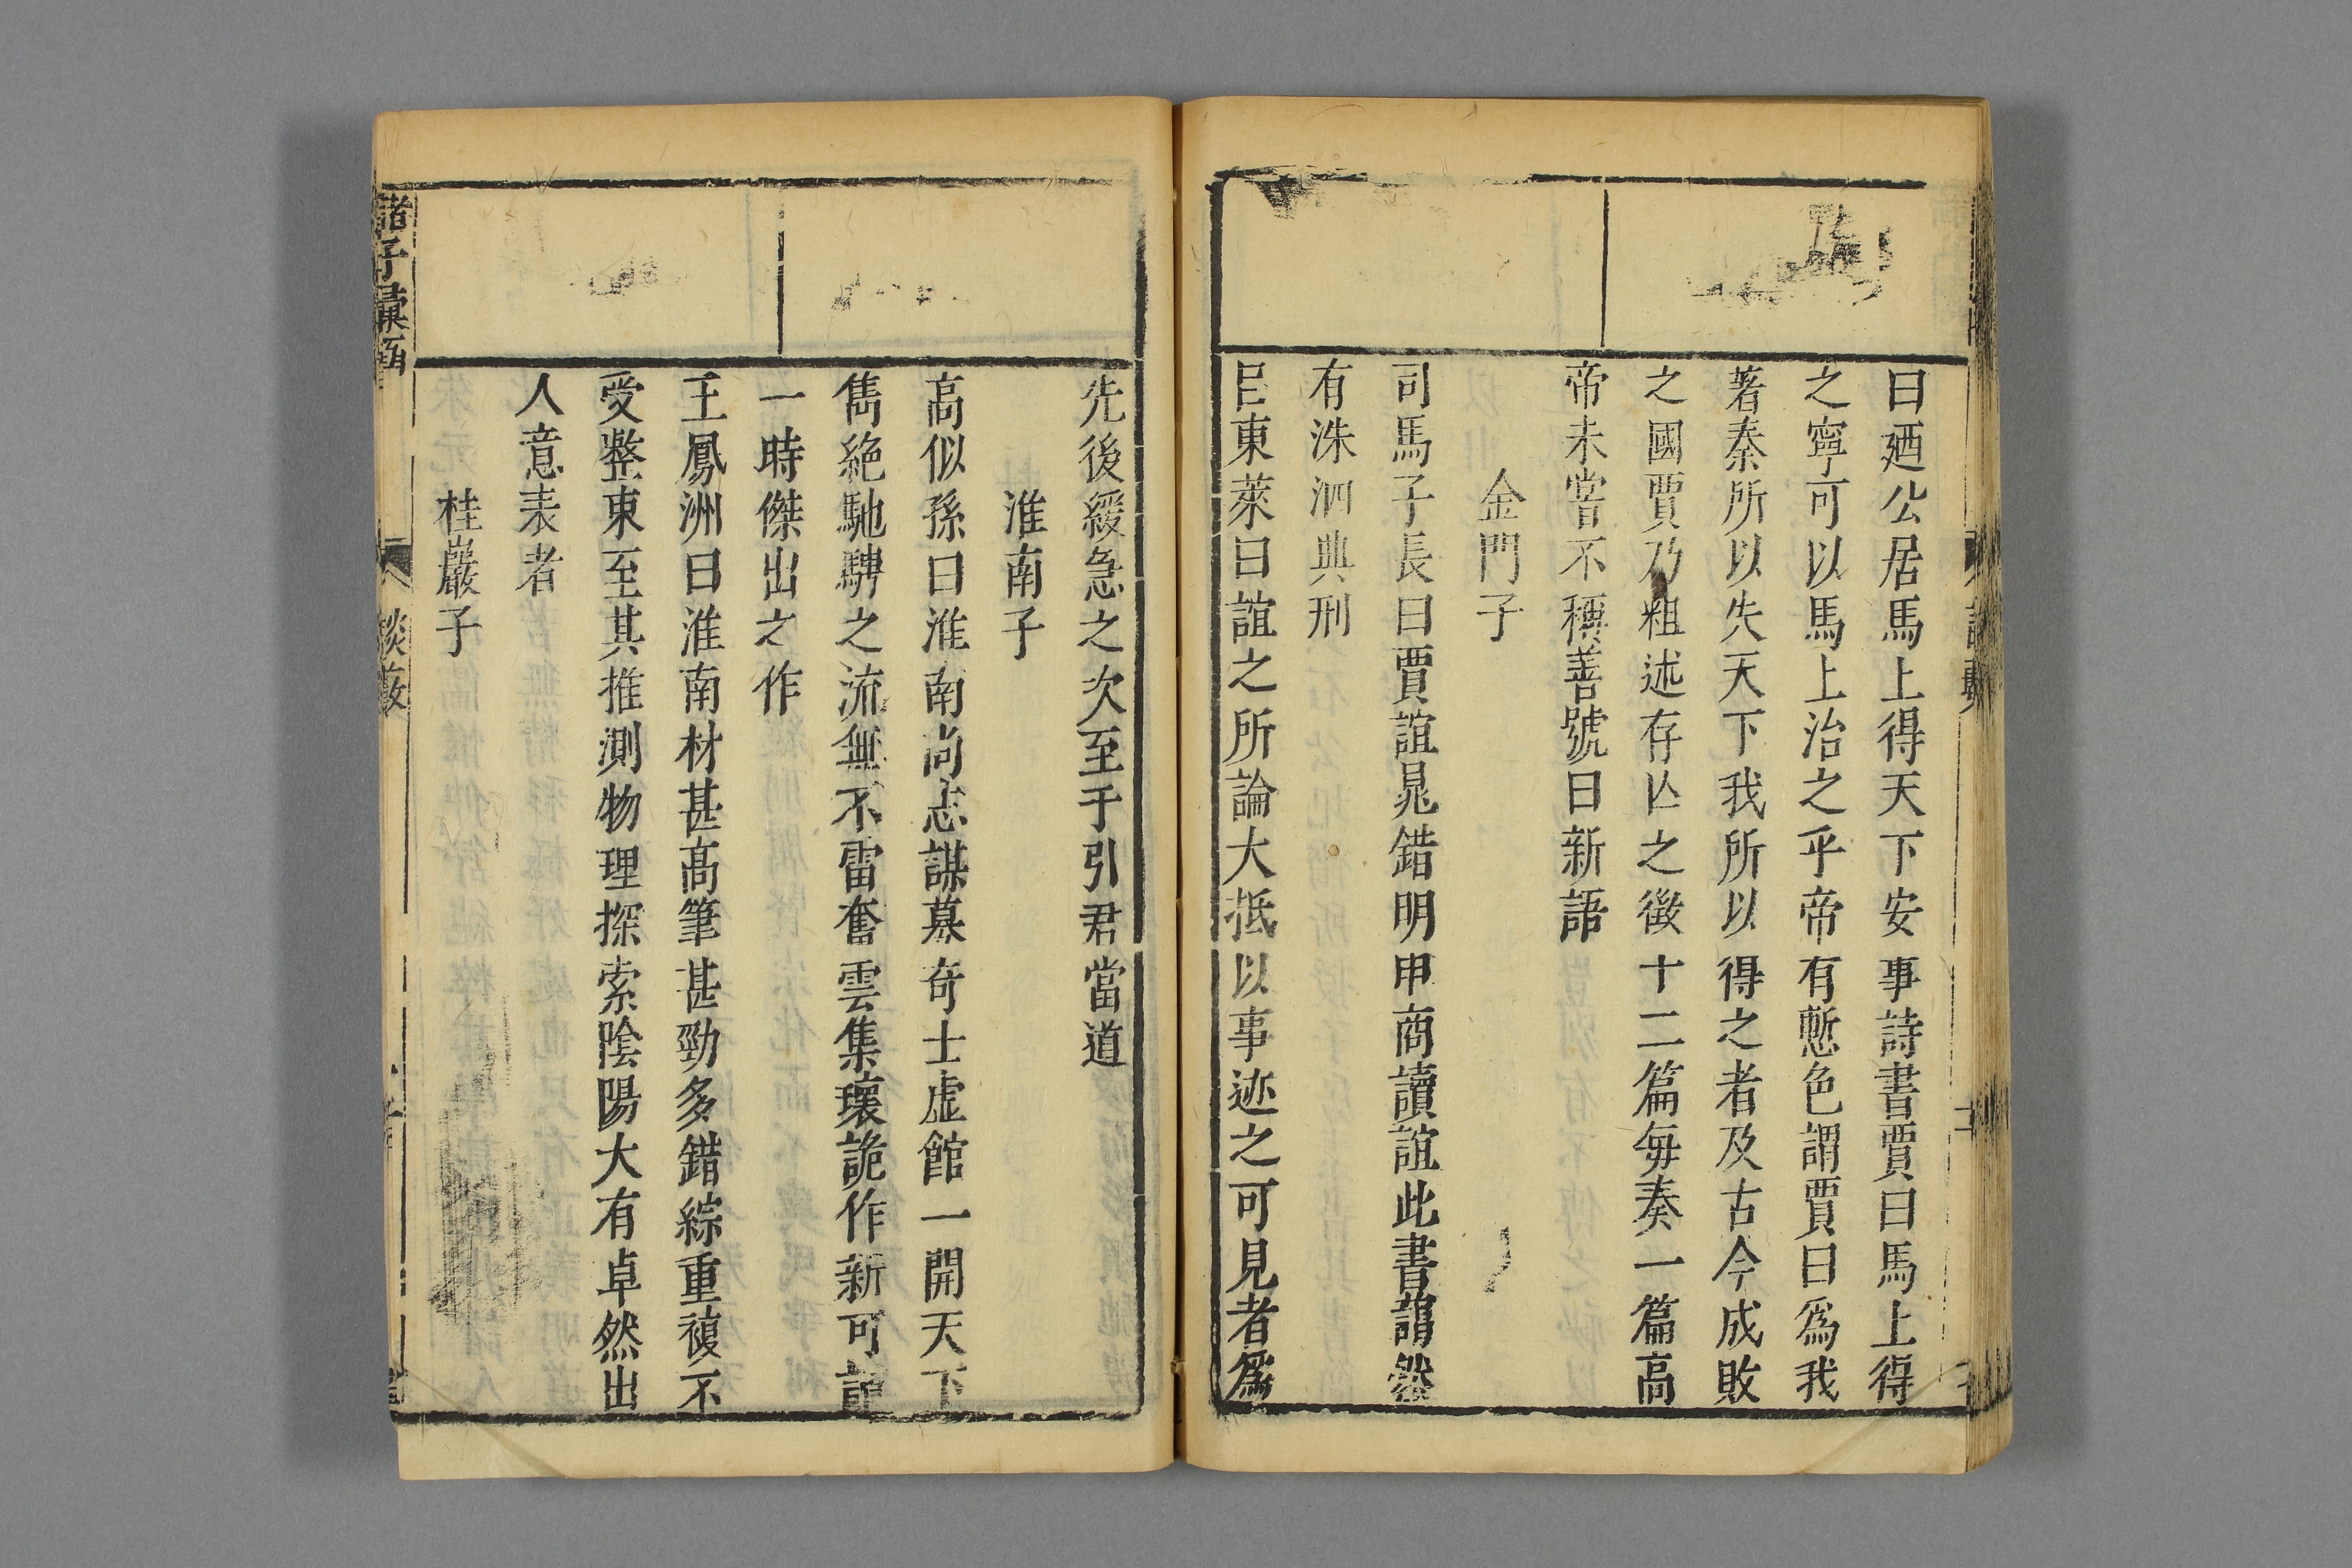 曰廼公居馬上得天下安事詩書賈曰馬上得
之寧可以馬上治之乎帝有慙色謂賈曰爲我
著秦所以失天下我所以得之者及古今成敗
之國賈乃粗述存亾之徵十二篇每奏一篇高
帝未嘗不稱善號曰新語
金門子
司馬子長曰賈誼晁錯明申商讀誼此書謂然
有洙泗典刑
吕東萊曰誼之所論大抵以事迹之可見者爲
先後緩急之次至于引君當道
淮南子
高似孫曰淮南尚志謀募奇士虛館一開天下
雋絶馳騁之流無不雷奮雲集瓌詭作新可謂
一時傑出之作
王鳳洲曰淮南材甚高筆甚勁多錯綜重複不
受整束至其推測物理探索陰陽大有卓然出
人意表者
桂巖子
諸子彙函
談藪